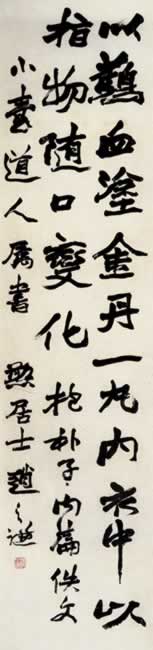 以鷄血塗金丹一丸內衣中以
指物随口變化 抱朴子內篇佚文
小袁道人屬書 憨居士趙之謙